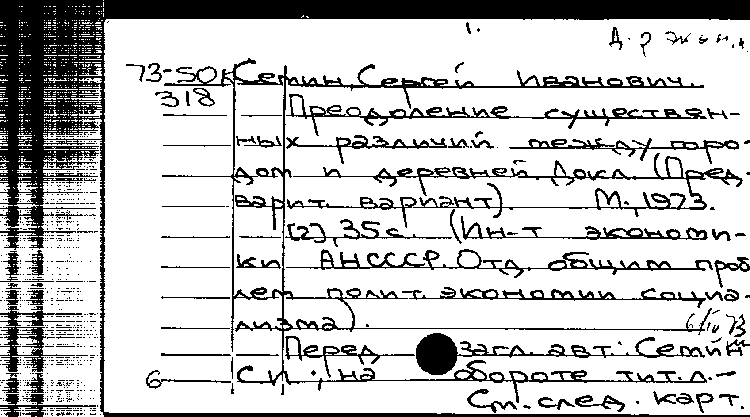 1.
73-50к Семин, Сергей Иванович.
318
Преодоление существен-
ных различий между горо-
дом и деревней. Докл. (Пред-
варит. вариант). М., 1973.
[2], 35 с. (Ин-т экономи-
ки АН СССР. Отд. общим проб
лем полит. экономии социа-
лизма).
Перед загл. авт.: Семин
6 С. И.; на обороте тит. л.-
См. след. карт.